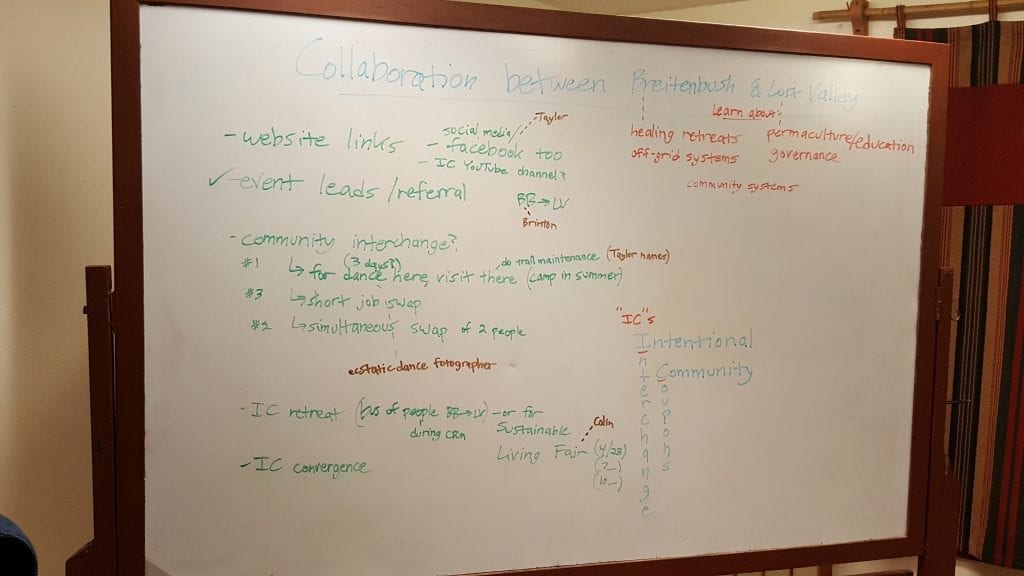 Collaboration between Breitenbush & Lost Valley
Learn about:
healing retreats permaculture/education
off-grid systems governance
community systems
- website links
social media/ Taylor
- facebook too
- IC YouTube channel?
✓-event leads/referral
BB→LV
Britton
- community interchange?
#1 ↳ for dance here, visit there (camp in summer)
(3 days?)
do trail maintenance (Taylor names)
#3 ↳ short job swap
#2 ↳ simultaneous swap of 2 people
ecstatic dance fotographer
- IC retreat (bus of people BB→LV) - or for
during CRM
Sustainable
Living Fair (4/28)
Colin
(7_)
(10_)
- IC convergence
"IC"s
Intentional
Community
Interchange
Coupons